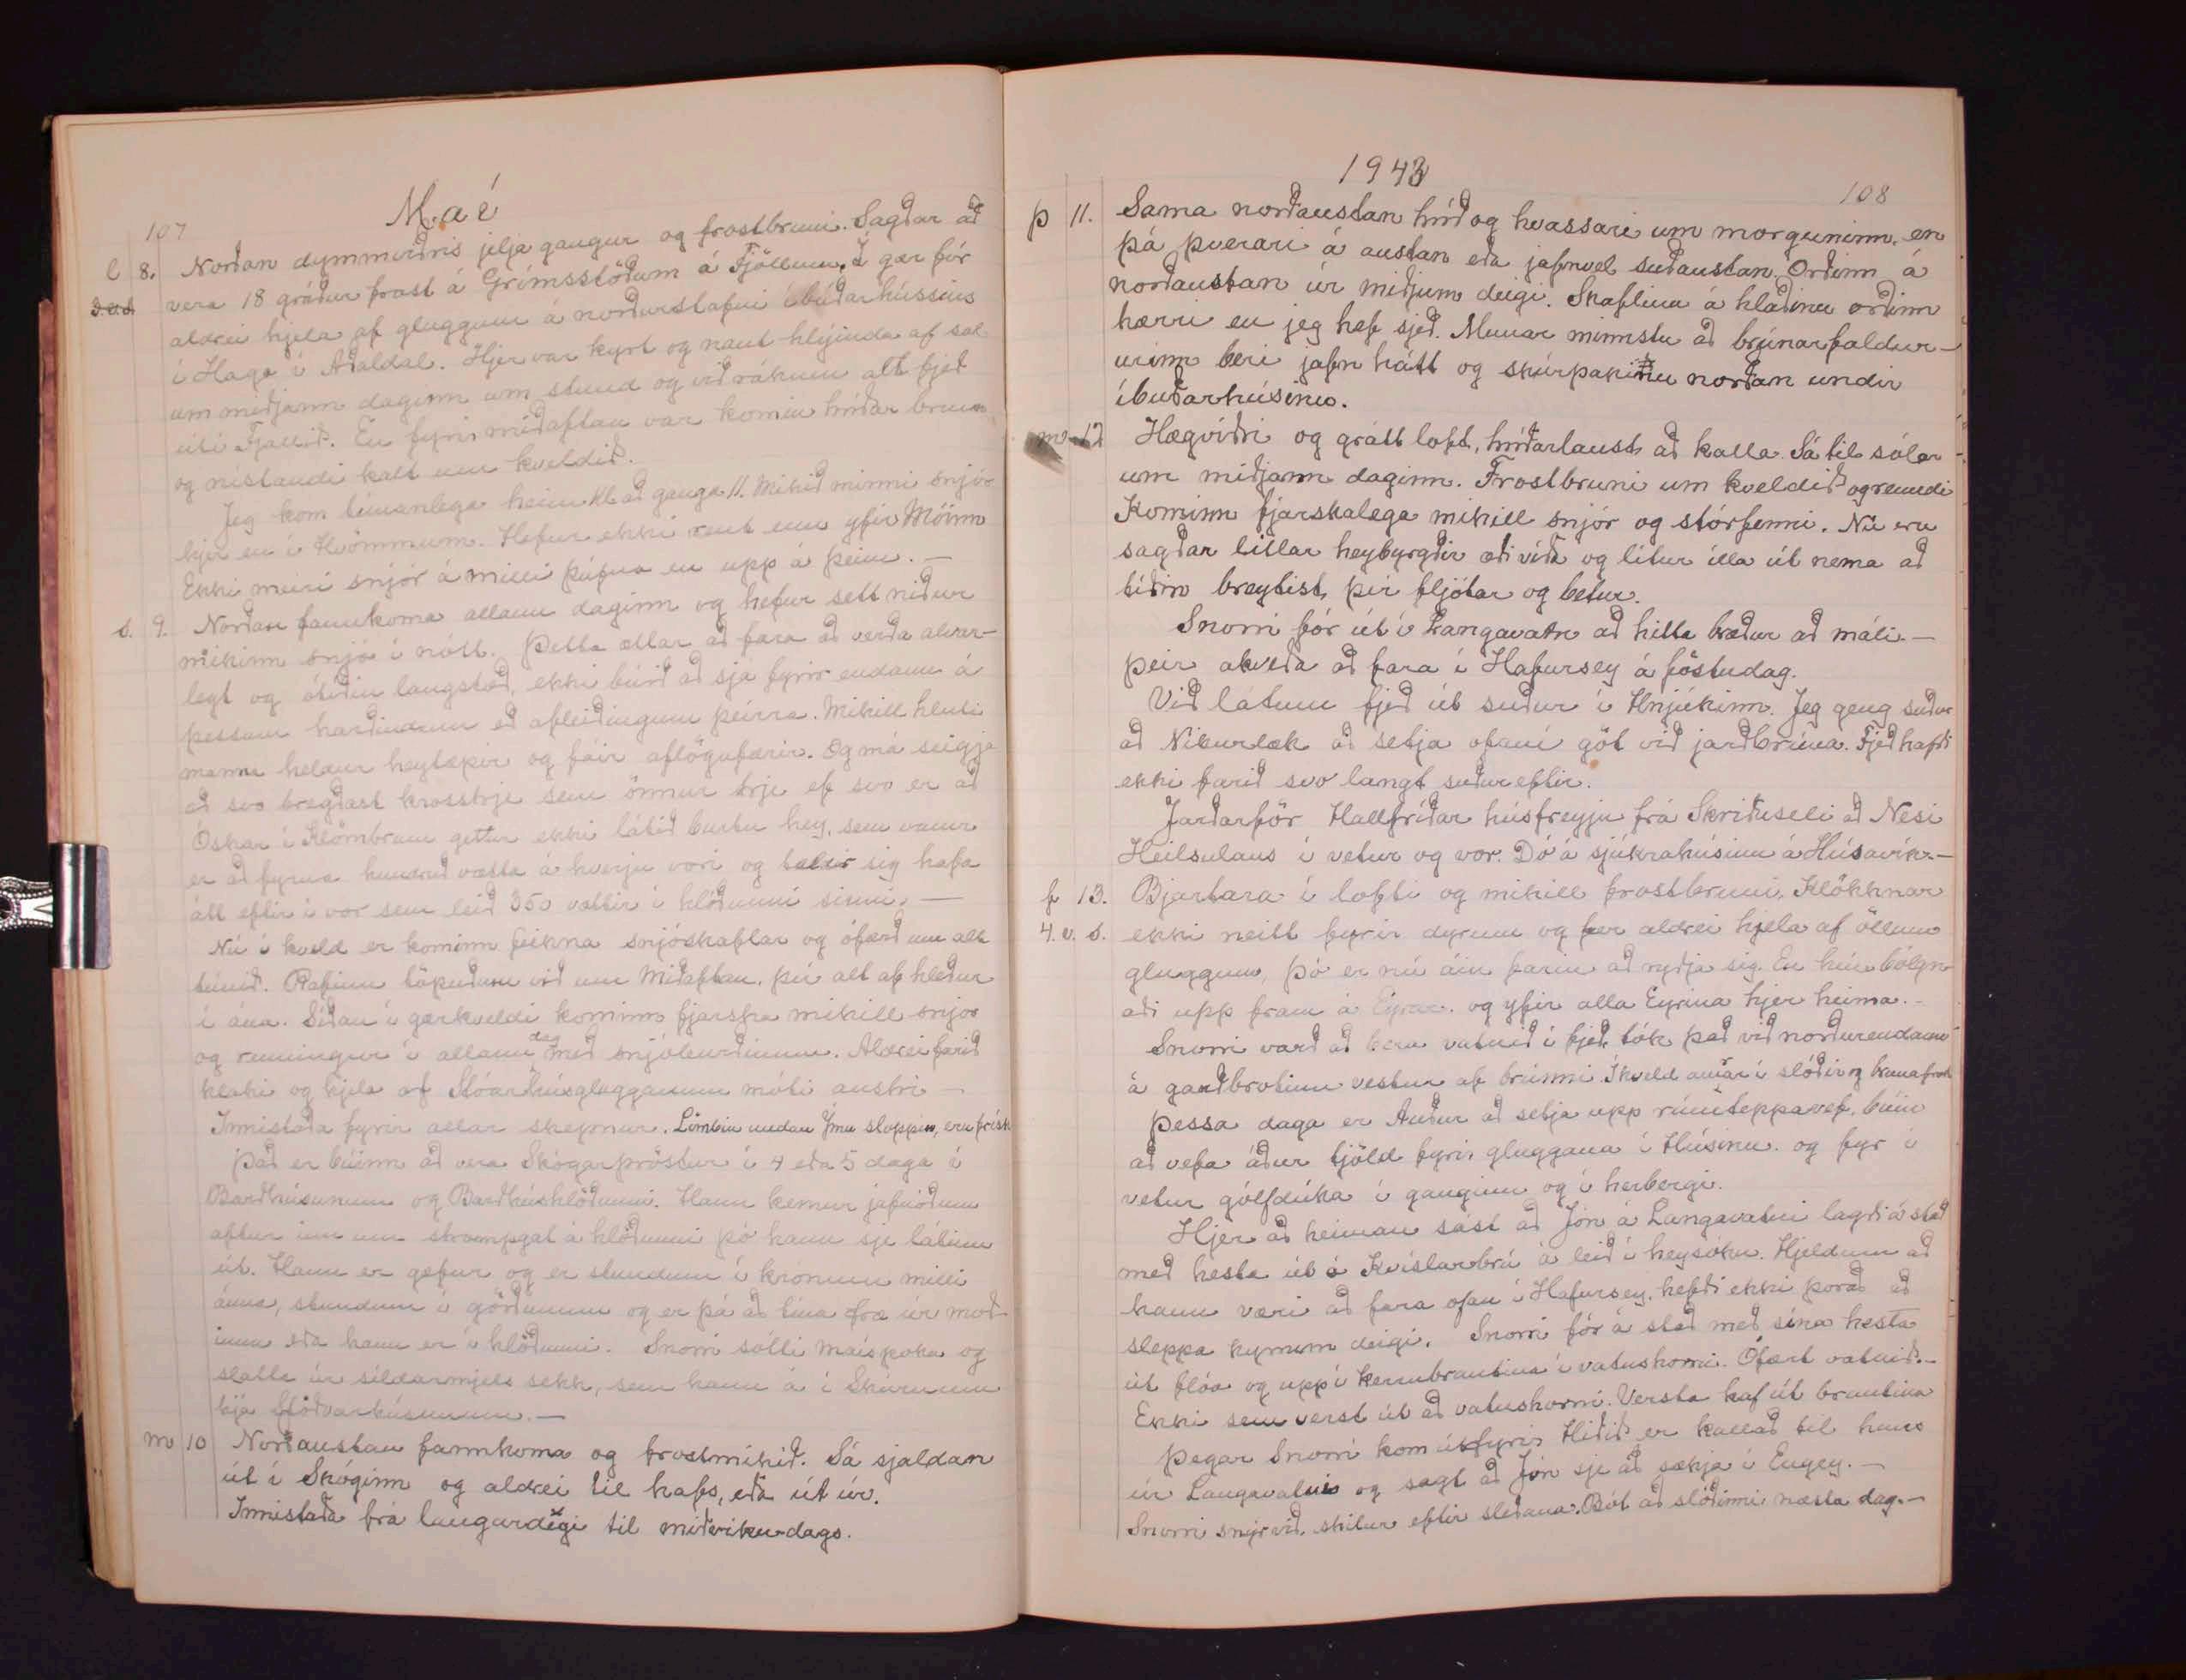 107
Maí
l 8. Norðan dymmviðris jelja gangur og frostbruni. Sagðar að
vera 18 gráður frost á Grímsstöðum á Fjöllum. Í gær fór
aldrei hjela af gluggum á norðurstafni íbúðarhússins
í Haga í Aðaldal. Hjer var kyrt og naut hlýinda af sól
um miðjann daginn um stund og við rákum alt fjeð
útí Fjallið. En fyrir miðaftan var komin hríðar bruna
og nístandi kalt um kveldið.
Jeg kom tímanlega heim kl. að ganga 11. Mikið minni snjór
hjer en í Hvömmum. Hefur ekki rent enn yfir Móinn
Ekki meiri snjór á milli þúfna en upp á þeim. —
s. 9. Norðan fannkoma allann daginn og hefur sett niður
mikinn snjó í nótt. Þetta ætlar að fara að verða alvar-
legt og ótíðin langstæð, ekki búið að sjá fyrir endann á
þessum harðindum eð afleiðingum þeirra. Mikill hluti
manna heldur heytæpir og fáir aflögufærir. Og má seigja
að svo bregðast krosstrje sem önnur trje ef svo er að
Óskar í Klömbrum gettur ekki látið burtu hey, sem vanur
er að fyrna hundrað vætta á hverju vori og taldir sig hafa
átt eftir í vor sem leið 350 vættir í hlöðunni sinni. —
Nú í kveld er kominn feikna snjóskaflar og ófærð um alt
túnið. Rafinn töpuðum við um Miðaftan, því alt af hleður
í ána. Síðan í gærkveldi kominn fjarska mikill snjór
og renningur í allann dag með snjóburðinum. Aldrei farið
klaki og hjela af Stóarhúsglugganum móti austri —
Innistaða fyrir allar skepnur. Lömbin undan Ýmu sloppin, eru frísk
Það er búinn að vera Skógarþröstur í 4 eða 5 daga í
Barðhúsunum og Barðhúshlöðunni. Hann kemur jafnóðum
aftur inn um strompgat á hlöðunni þó hann sje látinn
út. Hann er gæfur og er stundum í krónum milli
ánna, stundum í görðunum og er þá að tína fræ úr moð-
inu eða hann er í hlöðunni. Snorri sótti maíspoka og
slatta úr síldarmjels sekk, sem hann á í Skúrnum
hjá Stöðvarhúsunum. —
m 10 Norðaustan fannkoma og frostmikið. Sá sjaldan
út í Skóginn og aldrei til hafs, eða út úr.
Innistaða frá laugardegi til miðvikudags.
1943
108
þ 11. Sama norðaustan hríð og hvassari um morguninn, en
þá þverari á austan eða jafnvel suðaustan. Orðinn á
norðaustan úr miðjum deigi. Skaflinn á hlaðinu orðinn
hærri en jeg hef sjeð. Munar minnstu að brúnarfaldur-
urinn beri jafn hátt og skúrþakinu norðan undir
íbúðarhúsinu.
m 12 Hægviðri og grátt loft, hríðarlaust að kalla. Sá til sólar
um miðjann daginn. Frostbruni um kveldið og renndi
Kominn fjarskalega mikill snjór og stórfenni. Nú eru
sagðar litlar heybyrgðir æði víða og lítur illa út nema að
tíðin breytist, því fljótar og betur.
Snorri fór út í Langavatn að hitta bræður að máli —
þeir ákveða að fara í Hafursey á föstudag.
Við látum fjeð út suður í Hnjúkinn. Jeg geng suður
að Nikurlæk að setja ofaní göt við jarðbrúna. Fjeð hafði
ekki farið svo langt suðureftir.
Jarðarför Hallfríðar húsfreyju frá Skriðuseli að Nesi
Heilsulaus í vetur og vor. Dó á sjúkrahúsinu á Húsavík. —
f 13. Bjartara í lofti og mikill frostbruni. Klökknar
4. v. s. ekki neitt fyrir dyrum og fer aldrei hjela af öllum
gluggum, þó er nú áin farin að ryðja sig. En hún bólgn-
aði upp fram á Eyrar og yfir alla Eyrina hjer heima. —
Snorri varð að bera vatnið í fjeð, tók það við norðurendann
á garðbrotinu vestur af brúnni. Í kveld aurar í slóðir og bruna frost
Þessa daga er Auður að setja upp rúmteppavef, búin
að vefa áður tjöld fyrir gluggana í Húsinu og fyr í
vetur gólfdúka í ganginn og í herbergi.
Hjer að heiman sást að Jón á Langavatni lagði á stað
með hesta út á Kvíslarbrú á leið í heysókn. Hjeldum að
hann væri að fara ofan í Hafursey, hefði ekki þorað að
sleppa kyrrum deigi. Snorri fór á stað með sína hesta
út flóa og upp í Kerrubrautina í vatnshorni. Ófært vatnið. —
Ekki sem verst út að vatnshorni. Versta kaf út brautina
Þegar Snorri kom útfyrir Hliðið er kallað til hans
úr Langavatni og sagt að Jón sje að sækja í Engey. —
Snorri snýr við, skilur eftir sleðana. Bót að slóðinni næsta dag. —